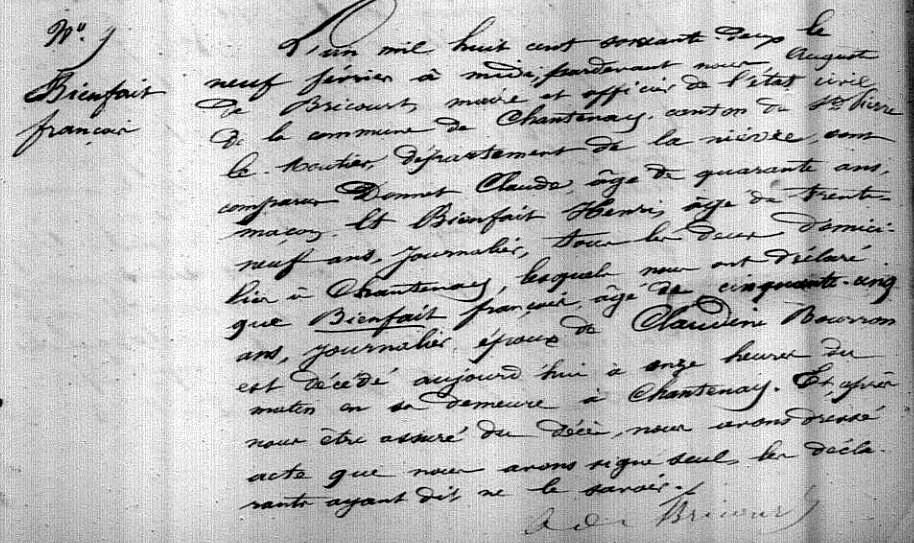 N°. 9
Bienfait
françois
L'an mil huit cent soixante deux le
neuf février à midi, pardevant nous Auguste
de Bricourt, maire et officier de l'état civil
de la commune de Chantenay, canton de St Pierre
le Moutier, département de la nièvre, sont
comparus Donnet Claude, âgé de quarante ans,
maçon. Et Bienfait Henri, âgé de trente-
neuf ans, journalier, tous les deux domici-
liés à Chantenay, lesquels nous ont déclaré
que Bienfait françois, âgé de cinquante-cinq
ans, journalier, époux de Claudine Bourron
est décédé aujourd'hui à onze heures du
matin en sa demeure à Chantenay. Et, après
nous être assuré du décès, nous avons dressé
acte que nous avons signé seul, les décla-
rants ayant dit ne le savoir.
A de Bricourt